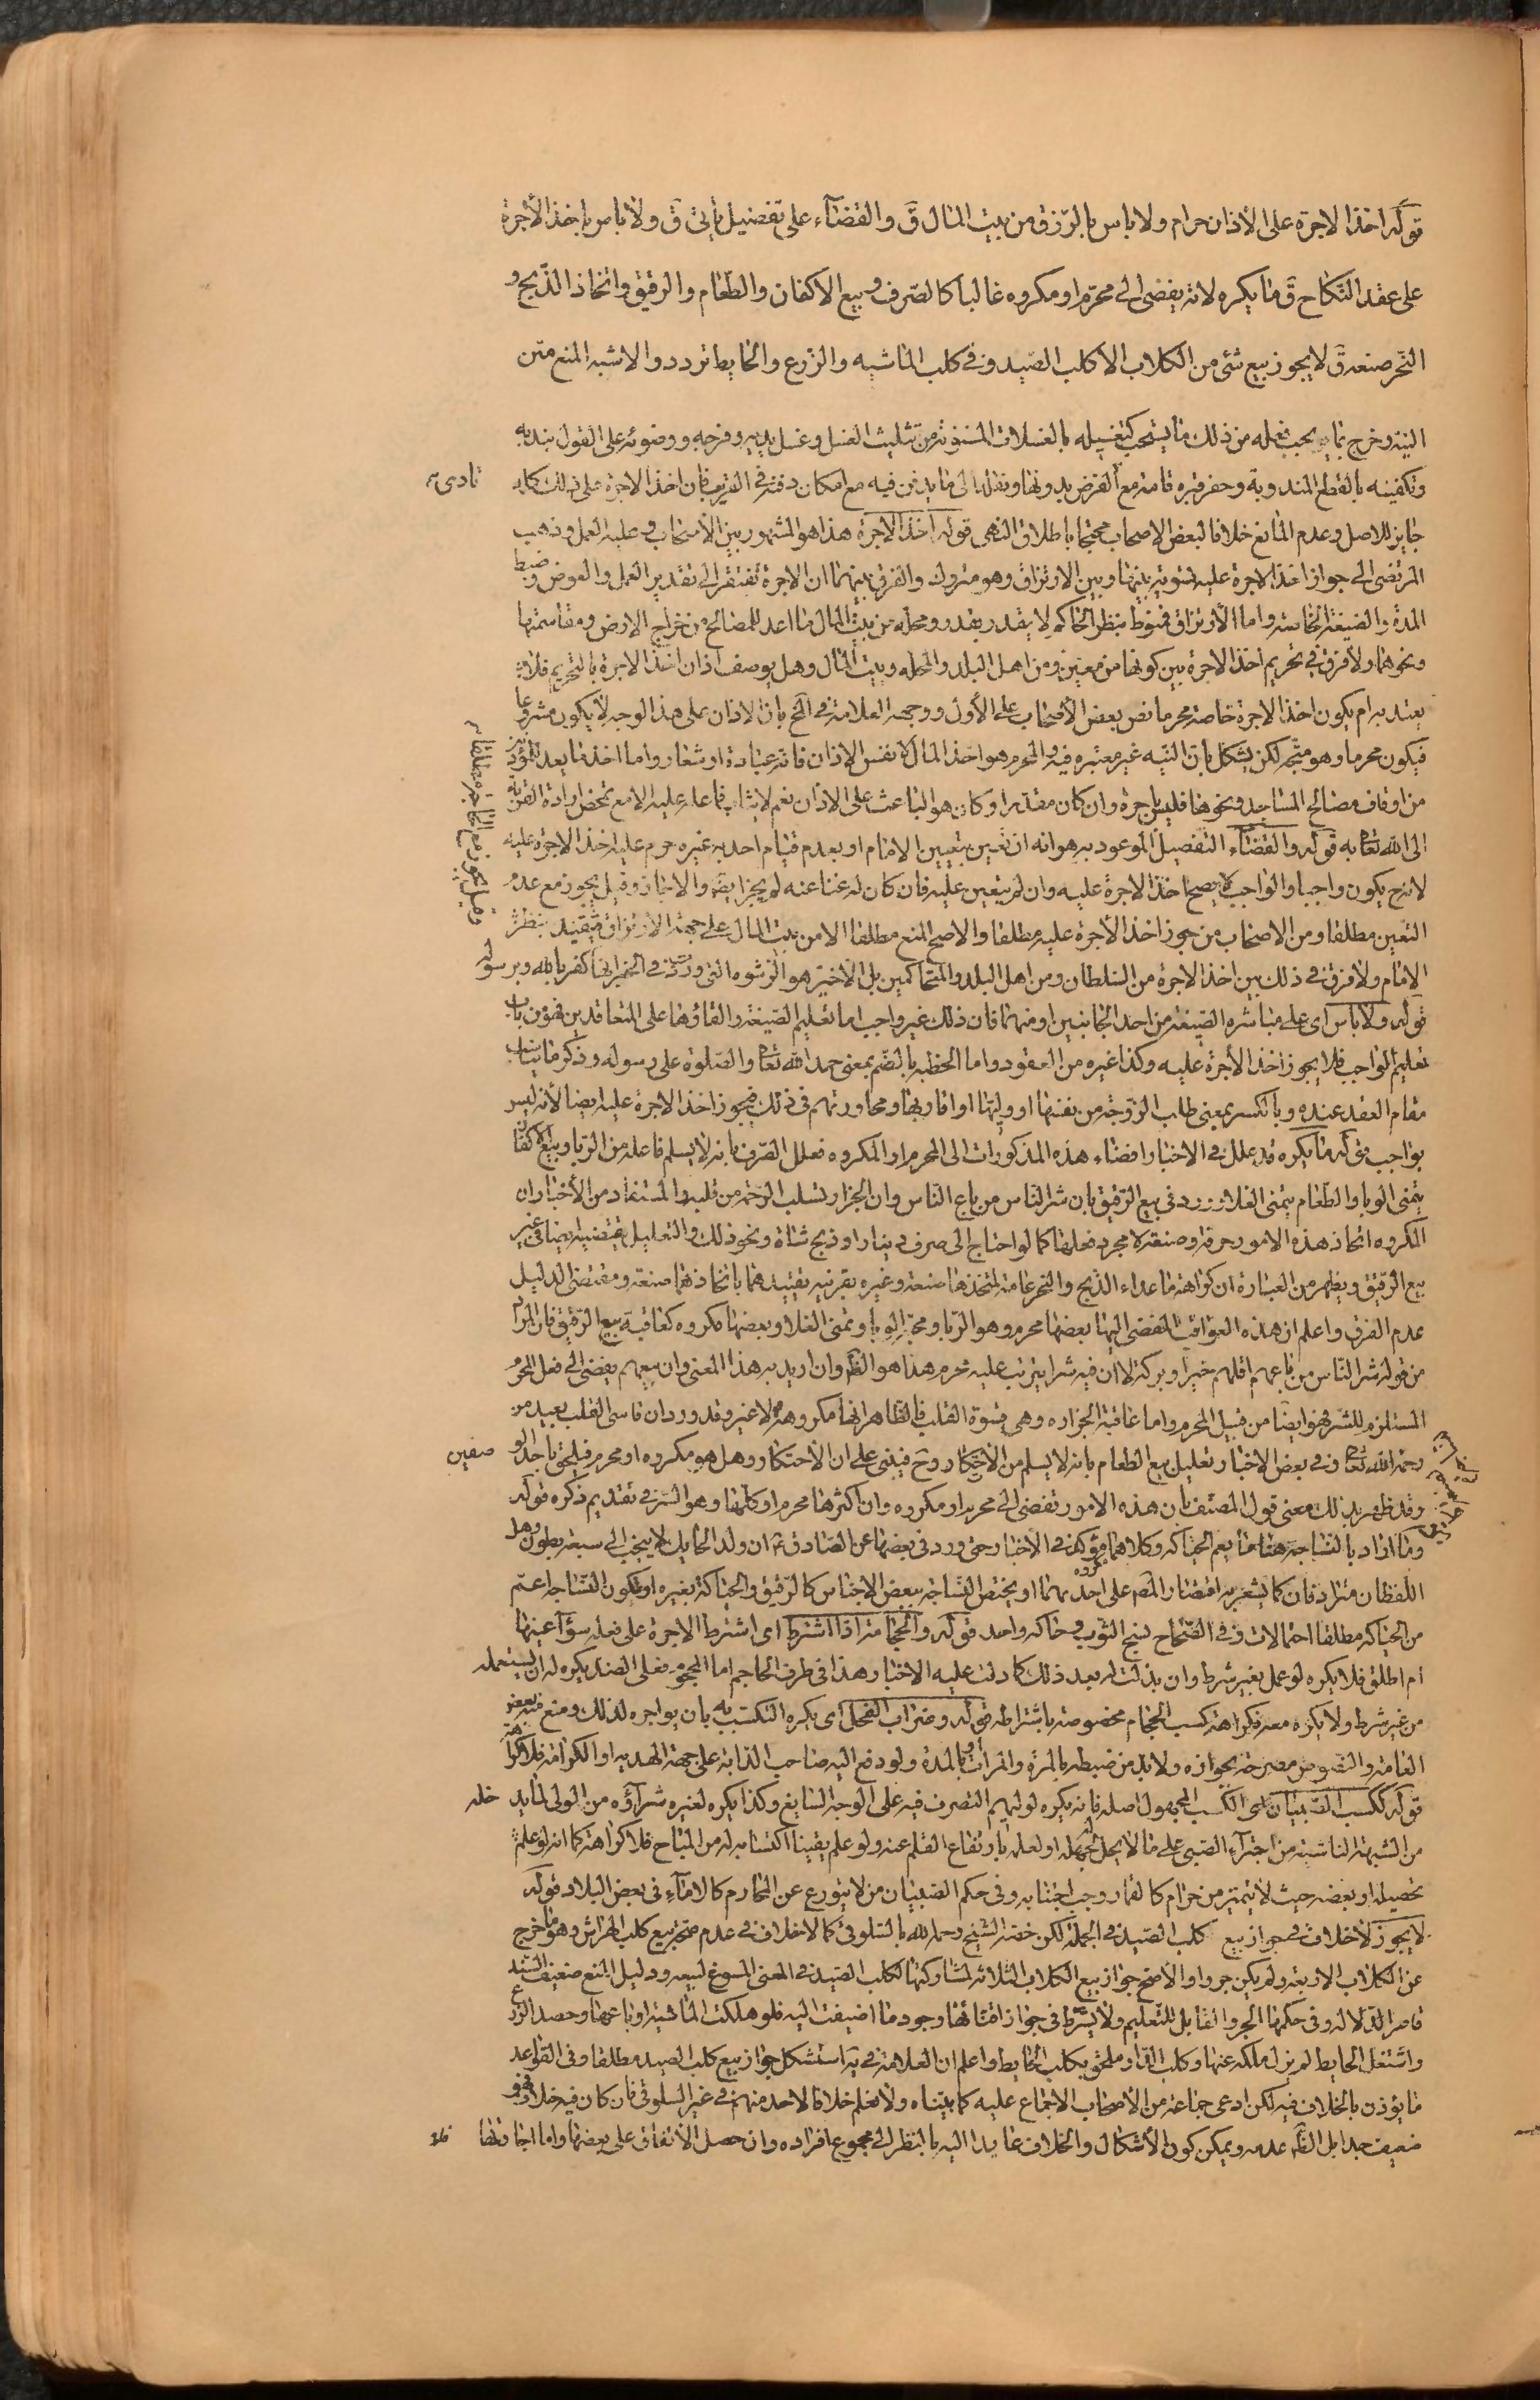 قوله اخذ الاجرة على الأذان حرام ولا باس بالرزق من بيت المال ق والقضاء على تفصيل يأتى ق ولا باس باخذ الأجرة
على عقد النكاح ق ما يكره لانه يفضى الى محرم او مكروه غالبا كالصرف وبيع الاكفان والطعام والرقيق واتخاذ الذبح و
النحر صنعة ق لا يجوز بيع شئ من الكلاب الا كلب الصيد وفى كلب الماشيه والزرع والحايط تردد والاشبه المنع متن
الميت وخرج بما يجب فعله من ذلك ما يستحب كتغسيله بالغسلات المسنونة من تثليث الغسل وغسل يديه وفرجه ووضوئه على القول بندبه
وتكفينه بالقطع المندوبة وحفر قبره قامة مع الفرض بدونها ونقله الى ما يدفن فيه مع امكان دفنه فى القريب فان اخذ الاجرة على ذلك كله
جايز للاصل وعدم المانع خلافا لبعض الاصحاب محتجا باطلاق النهى قوله اخذ الاجرة هذا هو المشهور بين الأصحاب وعليه العمل وذهب
المرتضى الى جواز اخذ الاجرة عليه لتسويته بينها وبين الارتزاق وهو متروك والفرق بينهما ان الاجرة تفتقر الى تقدير العمل والعوض وضبط
المدة والصيغة الخاصة واما الأرتزاق فمنوط بنظر الحاكم لا يقدر بقدر ومحله من بيت المال ما اعد للمصالح من خراج الارض ومقاسمتها
ونحوهما ولا فرق فى تحريم اخذ الاجرة بين كونها من معين ومن اهل البلد والمحله وبيت المال وهل يوصف اذان اخذ الاجرة بالتحريم فلا
يعتد به ام يكون اخذ الاجرة خاصة محرما نص بعض الأصحاب على الأول ووجهه العلامة فى المخ بان الاذان على هذا الوجه لا يكون مشروعا
فيكون محرما وهو متجه لكن يشكل بان النيه غير معتبره فيه والمحرم هو اخذ المال لا نفس الاذان فانه عبادة او شعار واما اخذ ما يعد للمؤذنين
من اوقاف مصالح المساجد ونحوها فليس باجرة وان كان مقدرا وكان هو الباعث على الاذان نعم لا يثاب فاعله عليه الا مع تمحض ارادة القربة
الى الله تعا به قوله والقضاء التفصيل الموعود به هو انه ان تعين بتعيين الامام او بعدم قيام احد به غيره حرم عليه اخذ الاجرة عليه
لانه ح يكون واجبا والواجب لا يصح اخذ الاجرة عليه وان لم يتعين عليه فان كان له غنا عنه لم يجز ايضا والا جاز وقيل يجوز مع عدم
التعين مطلقا ومن الاصحاب من جوز اخذ الأجرة عليه مطلقا والاصح المنع مطلقا الا من بيت المال على جهة الارتزاق فيقيد بنظر
الامام ولا فرق فى ذلك بين اخذ الاجرة من السلطان ومن اهل البلد والمتحاكمين بل الأخير هو الرشوه التى ورد فى الخبر انها كفر بالله وبرسوله
قوله ولا باس اى على مباشرة الصيغة من احد الجانبين او منهما فان ذلك غير واجب اما تعليم الصيغة والقاؤها على المتعاقدين فهو من باب
تعليم الواجب فلا يجوز اخذ الأجرة عليه وكذا غيره من العقود واما الخطبه بالضم بمعنى حمد الله تعا والصلوة على رسوله وذكر ما يناسب
مقام العقد عنده وبالكسر بمعنى طلب الزوجة من نفسها او وليها او اقاربها ومحاورتهم فى ذلك فيجوز اخذ الاجرة عليه ايضا لأنه ليس
بواجب قوله ما يكره قد علل فى الاخبار افضاء هذه المذكورات الى المحرم او المكروه فعلل الصرف بانه لا يسلم فاعله من الربا وبيع الاكفان
يتمنى الوبا والطعام يتمنى الغلا وورد فى بيع الرقيق بان شر الناس من باع الناس وان الجزار تسلب الرحمة من قلبه والمستفاد من الأخبار ان
المكروه اتخاذ هذه الامور حرفة وصنعة لا مجرد فعلها كما لو احتاج الى صرف دينار او ذبح شاة ونحو ذلك والتعليل يقتضيه ايضا فى غير
بيع الرقيق ويظهر من العبارة ان كراهة ما عداء الذبح والنحر عامة لمتخذها صنعة وغيره بقرينه تقييدهما باتخاذهما صنعة ومقتضى الدليل
عدم الفرق واعلم ان هذه العواقب المفضى اليها بعضها محرم وهو الربا ومحبة الوباء وتمنى الغلا وبعضها مكروه كعاقبة بيع الرقيق فان المراد
من قوله شر الناس من باعهم اقلهم خيرا وبركة لا ان فيه شرا يترتب عليه محرم هذا هو الظ وان اريد به هذا المعنى وان بيعهم يفضى الى فعل المحرم
المستلزم للشر فهو ايضا من قبيل المحرم واما عاقبة الجزاره وهى قسوة القلب فالظاهر انها مكروهة لا غير وقد ورد ان قاسى القلب بعيد من
رحمة الله تعا وفى بعض الاخبار تعليل بيع الطعام بانه لا يسلم من الأحتكار وح فيبنى على ان الأحتكار وهل هو مكروه او محرم فيلحق باحد الو صفين
وقد ظهر بذلك معنى قول المصنف بان هذه الامور تفضى الى محرم او مكروه وان اكثرها محرم او كلها وهو السر فى تقديم ذكره قوله
وما اراد بالنساجه هنا ما يعم الحياكه وكلاهما مؤكد فى الأخبار حتى ورد فى بعضها عن الصادق ع ان ولد الحايك لا ينجب الى سبعة بطون وهل
اللفظان مترادفان كما يشعر به اقتصار المص على احدهما او يختص النساجة ببعض الاجناس كالرقيق والحياكة بغيره او تكون النساجه اعم
من الحياكه مطلقا احتمالات وفى الصحاح نسج الثوب وحاكه واحد قوله والحجامة اذا اشترط اى اشترط الاجرة على فعله سواء عينها
ام اطلق فلا يكره لو عمل بغير شرط وان بذلت له بعد ذلك كما دلت عليه الاخبار هذا فى طرف الحاجم اما المحجوم فعلى الضد يكره له ان يستعمله
من غير شرط ولا يكره معه فكراهة كسب الحجام مخصوصة باشتراطه قوله وضراب الفحل اى يكره التكسب به بان يواجره لذلك ومنع منه بعض
العامة والنصوص مصرحة بجوازه ولا بد من ضبطه بالمرة والمرات او بالمدة ولو دفع اليه صاحب الدابة على جهة الهديه او الكرامة فلا كراهة
قوله ككسب الصبيان اى الكسب المجهول اصله فانه يكره لوليهم التصرف فيه على الوجه السايغ وكذا يكره لغيره شراؤه من الولى لما يد خله
من الشبهة الناشية من اجتراء الصبى على ما لا يحل لجهله او لعلمه بارتفاع القلم عنه ولو علم يقينا اكتسابه له من المباح فلا كراهة كما انه لو علم
تحصيله او بعضه حيث لا يتميز من حرام كالقمار وجب اجتنابه وفى حكم الصبيان من لا يتورع عن المحارم كالاماء فى بعض البلاد قوله
لا يجوز لا خلاف فى جواز بيع كلب الصيد فى الجملة لكن خصه الشيخ رحمه الله بالسلوقى كما لا خلاف فى عدم صحة بيع كلب الهراش وهو ما خرج
عن الكلاب الاربعة ولم يكن جروا والأصح جواز بيع الكلاب الثلاثة لمشاركتها لكلب الصيد فى المعنى المسوغ لبيعه ودليل المنع ضعيف السند
قاصر الدلالة وفى حكمها الجرو القابل للتعليم ولا يشترط فى جواز اقتنائها وجود ما اضيفت اليه فلو هلكت الماشية او باعها وحصد الزرع
واشتغل الحايط لم يزل ملكه عنها وكلب الدار ملحق بكلب الحايط واعلم ان العلامة فى ير استشكل جواز بيع كلب الصيد مطلقا وفى القواعد
ما يؤذن بالخلاف فيه لكن ادعى جماعة من الأصحاب الاجماع عليه كما بيناه ولا نعلم خلافا لاحد منهم فى غير السلوقى فان كان فيه خلاف فهو
ضعيف جدا بل الظ عدمه ويمكن كون الأشكال والخلاف عايدا اليه بالنظر الى مجموع افراده وان حصل الأتفاق على بعضها واما اجارتها